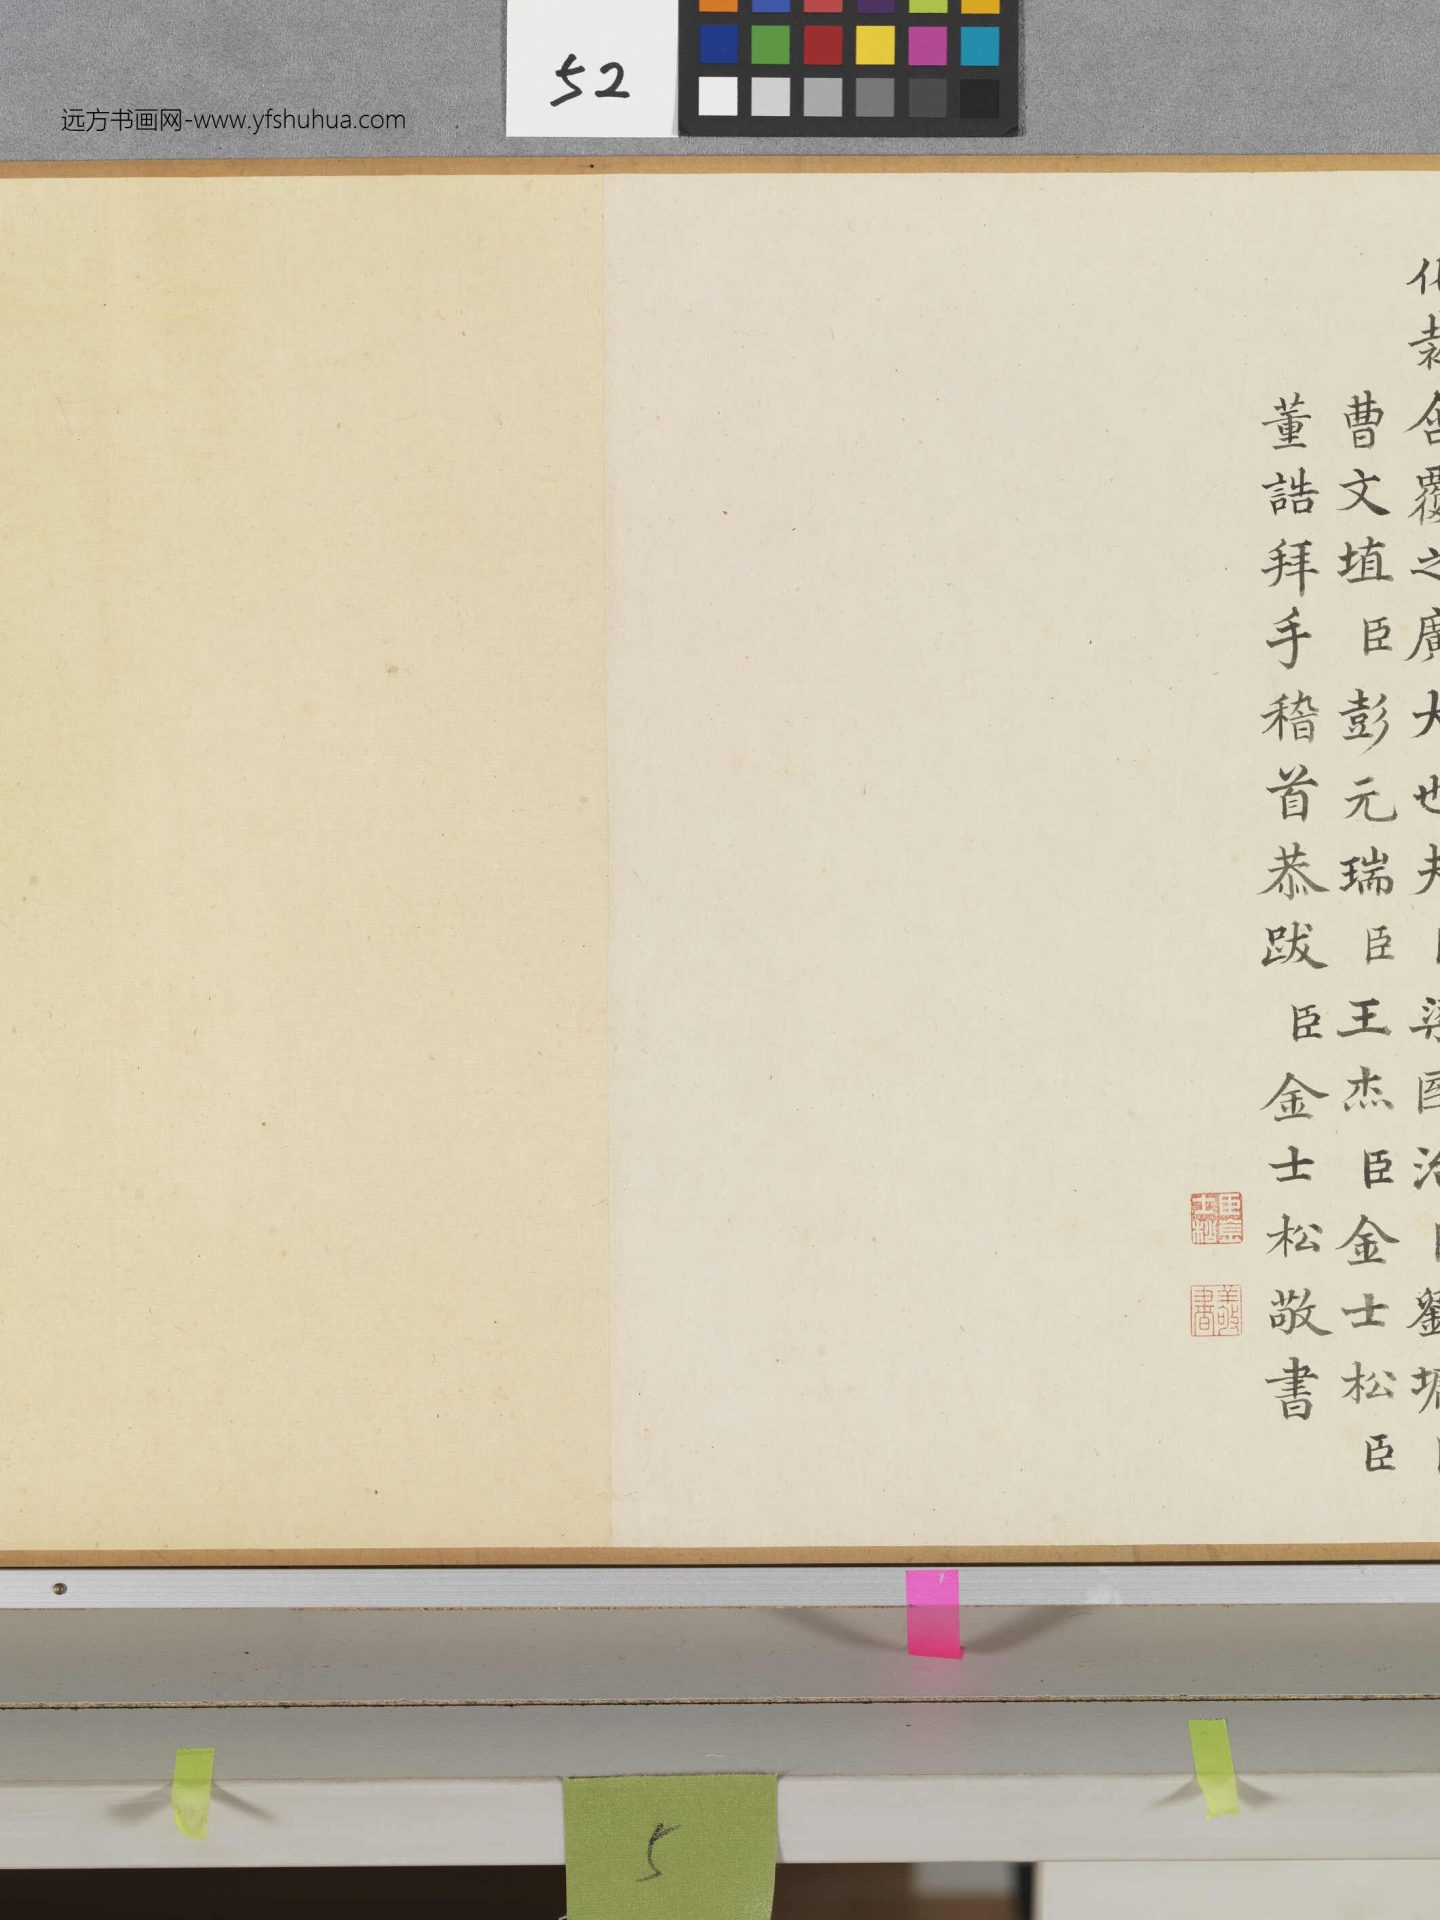 52
远方书画网-www.yfshuhua.com
化
含覆之廣大也夫臣梁國治臣劉墉臣
曹文埴臣彭元瑞臣王杰臣金士松臣
董誥拜手稽首恭跋臣金士松敬書
臣金士松
敬書
5